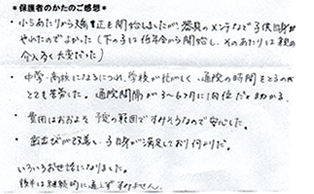 *保護者のかたのご感想*
・小5あたりから矯正を開始しましたが、器具のメンテなど子供自身が
やれたのでよかった（下の子は低年令から開始し、そのあたりは親の
介入多く大変だった）
・中学・高校になるにつれ、学校が忙しく、通院の時間をとるのが
とても苦労した。通院間隔が3〜6ヶ月に1回位だと助かる。
・費用はおおよそ予定の範囲ですみそうなので安心した。
・歯並びが改善し、子供が満足しており何よりだ。
いろいろお世話になりました。
後半は継続的に通えずすみません。